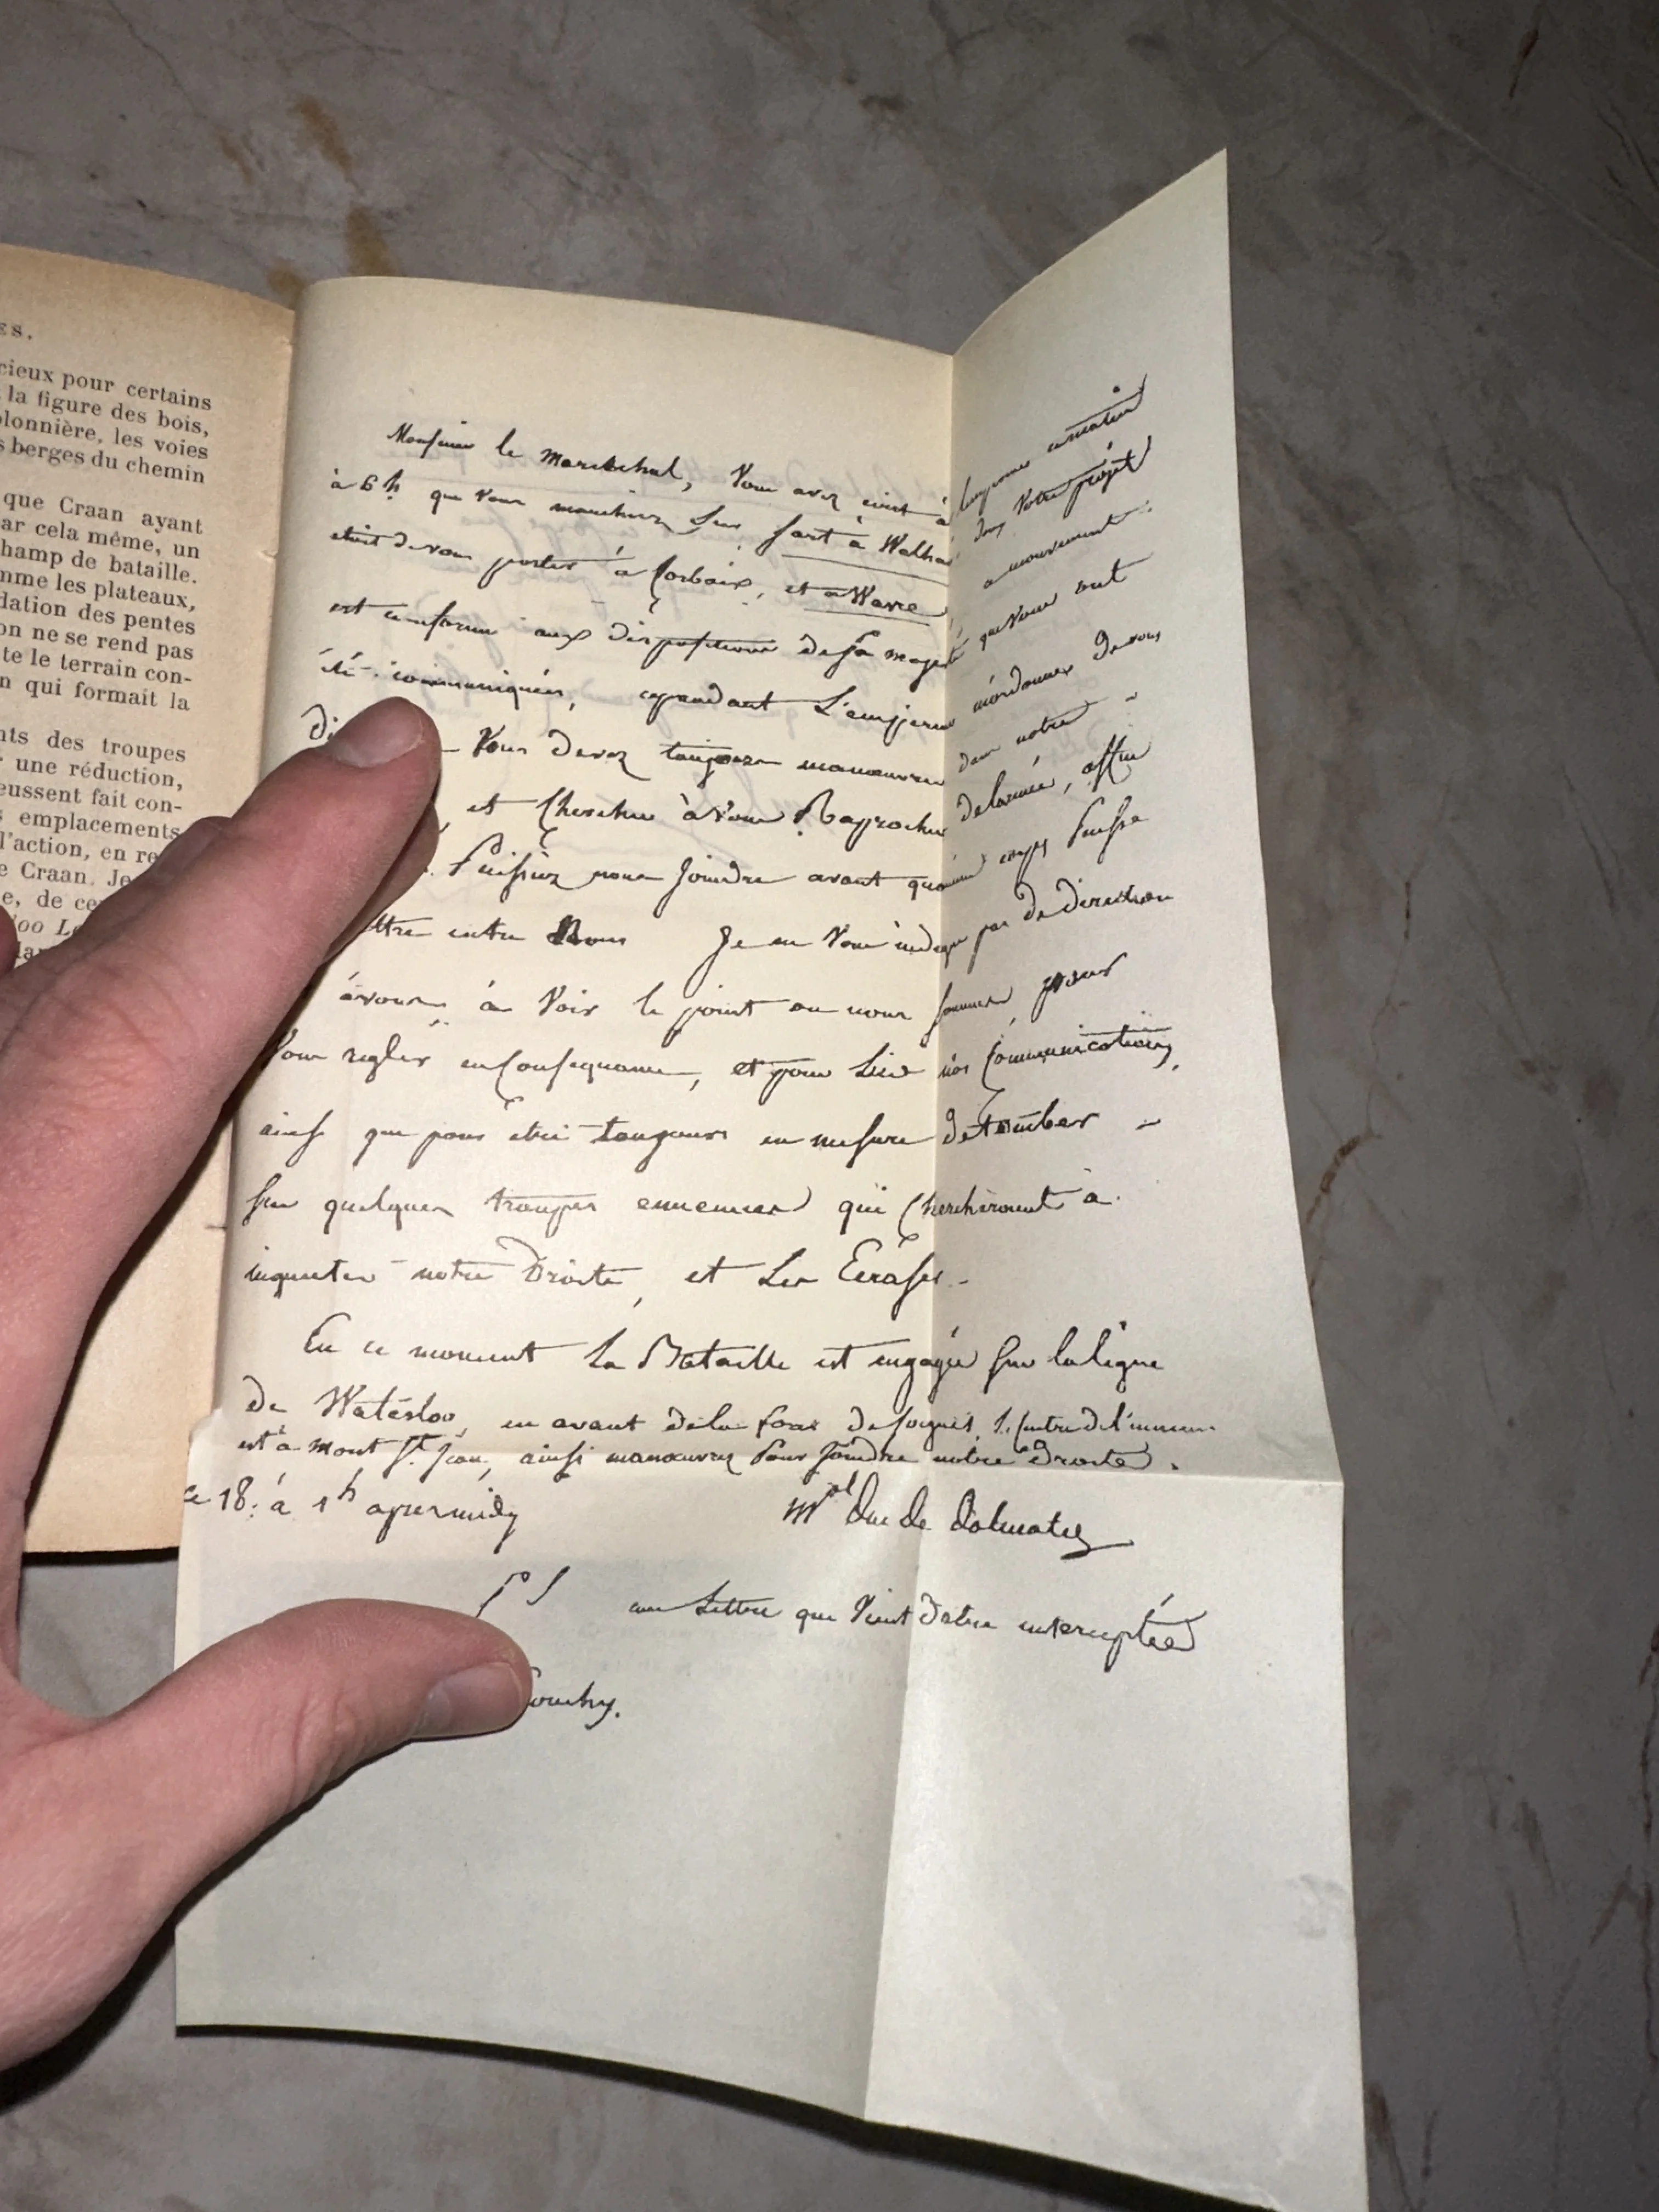 ES.
cieux pour certains
la figure des bois,
olonnière, les voies
s berges du chemin
que Craan ayant
ar cela même, un
hamp de bataille.
mme les plateaux,
dation des pentes
on ne se rend pas
te le terrain con-
n qui formait la
nts des troupes
r une réduction,
eussent fait con-
s emplacements
l'action, en re
e Craan. Je
e, de ce
loo L
lan
Monsieur le marechal, Vous avez écrit à l'empereur ce matin
à 6h. que vous marchiez sur Sart à Walhain donc votre projet
etait de vous porter à Corbaix, et à Wavre, ce mouvement
est conforme aux dispositions de Sa majesté que vous ont
été communiquées, cependant L'empereur m'ordonne de vous
di Vous devez toujours manœuvrer dans notre
, et Chercher à vous Raprocher de larmée, affin
. Puissiez nous Joindre avant qu'aucun corps puisse
ttre entre Nous Je ne vous indique pas de direction
àvous, à Voir le point ou nous sommes pour
Vous regler en Consequence, et pour Lier nos Communications,
ainsi que pour être toujours en mesure de tomber
sur quelques troupes ennemies qui Chercheroient à
inquieter notre Droite, et Les Ecraser
En ce moment La Bataille est engagée sur la ligne
De Waterloo, en avant de la foret de soignes, le centre de l'ennemi
est à mont St. Jean, ainsi manœuvrez pour joindre notre Droite.
ce 18. à 1h apres midy
Mal Duc de Dalmatie
PS une Lettre que Vient d'etre interceptée
ouchy.